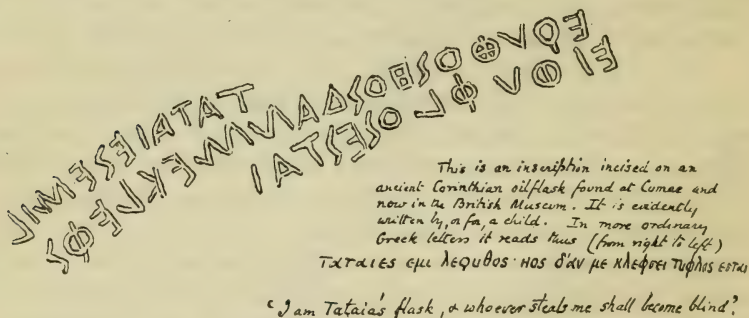 ΤΑΤΑΙΕSΕΜΙΛ
ΕϘVΘΟSΗΟSΔΑΝΜΕΚΛΕΦS
ΕΙΘVΦΛΟSΕSΤΑΙ
This is an inscription incised on an
ancient Corinthian oilflask found at Cumae and
now in the British Museum. It is evidently
written by, or for, a child. In more ordinary
Greek letters it reads thus (from right to left)
Ταταιες εμι λεϙυθος · hος δ'άν με κλεφσει τυφλος εσται
'I am Tataia's flask, & whoever steals me shall become blind'.